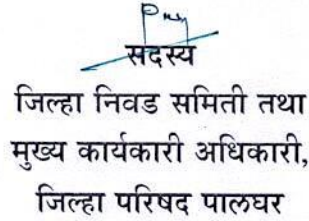 सदस्य
जिल्हा निवड समिती तथा
मुख्य कार्यकारी अधिकारी,
जिल्हा परिषद पालघर